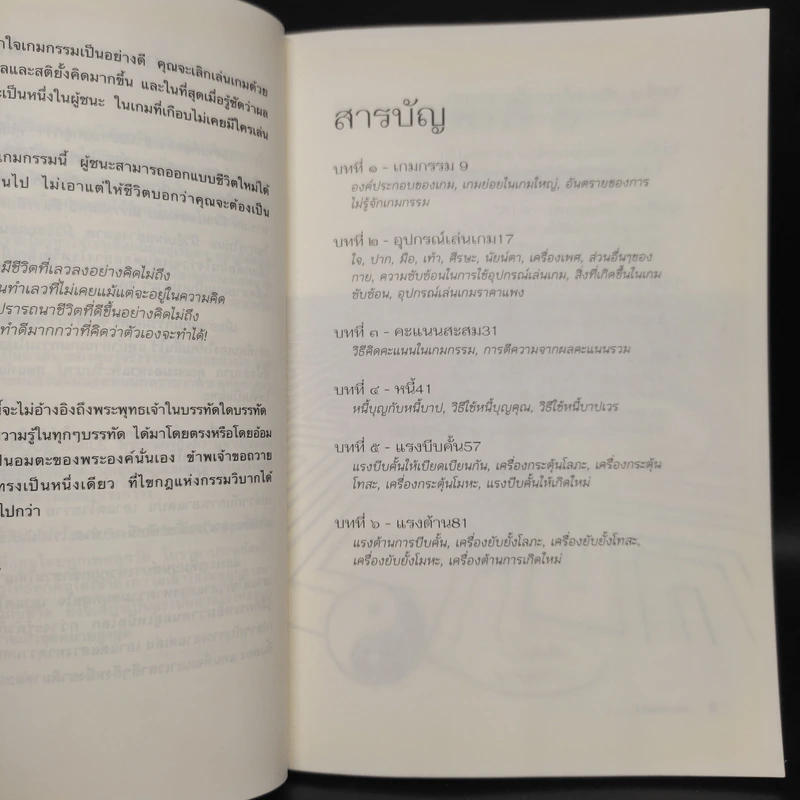 าใจเกมกรรมเป็นอย่างดี คุณจะเลิกเล่นเกมด้วย
ลและสติยั้งคิดมากขึ้น และในที่สุดเมื่อรู้ชัดว่าผล
ะเป็นหนึ่งในผู้ชนะ ในเกมที่เกือบไม่เคยมีใครเล่น
เกมกรรมนี้ ผู้ชนะสามารถออกแบบชีวิตใหม่ได้
นไป ไม่เอาแต่ให้ชีวิตบอกว่าคุณจะต้องเป็น
มีชีวิตที่เลวลงอย่างคิดไม่ถึง
นทำเลวที่ไม่เคยแม้แต่จะอยู่ในความคิด
ปรารถนาชีวิตที่ดีขึ้นอย่างคิดไม่ถึง
ทำดีมากกว่าที่คิดว่าตัวเองจะทำได้!
จะไม่อ้างอิงถึงพระพุทธเจ้าในบรรทัดใดบรรทัด
วามรู้ในทุกๆบรรทัด ได้มาโดยตรงหรือโดยอ้อม
ป็นอมตะของพระองค์นั่นเอง ข้าพเจ้าขอถวาย
ทรงเป็นหนึ่งเดียว ที่ไขกฎแห่งกรรมวิบากได้
ไปกว่า
สารบัญ
บทที่ ๑ - เกมกรรม 9
องค์ประกอบของเกม, เกมย่อยในเกมใหญ่, อันตรายของการ
ไม่รู้จักเกมกรรม
บทที่ ๒ - อุปกรณ์เล่นเกม17
ใจ, ปาก, มือ, เท้า, ศีรษะ, นัยน์ตา, เครื่องเพศ, ส่วนอื่นๆของ
กาย, ความซับซ้อนในการใช้อุปกรณ์เล่นเกม, สิ่งที่เกิดขึ้นในเกม
ซับซ้อน, อุปกรณ์เล่นเกมราคาแพง
บทที่ ๓ - คะแนนสะสม31
วิธีคิดคะแนนในเกมกรรม, การตีความจากผลคะแนนรวม
บทที่ ๔ - หนี้41
หนี้บุญกับหนี้บาป, วิธีใช้หนี้บุญคุณ, วิธีใช้หนี้บาปเวร
บทที่ ๕ - แรงบีบคั้น57
แรงบีบคั้นให้เบียดเบียนกัน, เครื่องกระตุ้นโลภะ, เครื่องกระตุ้น
โทสะ, เครื่องกระตุ้นโมหะ, แรงบีบคั้นให้เกิดใหม่
บทที่ ๖ - แรงต้าน81
แรงต้านการบีบคั้น, เครื่องยับยั้งโลภะ, เครื่องยับยั้งโทสะ,
เครื่องยับยั้งโมหะ, เครื่องต้านการเกิดใหม่